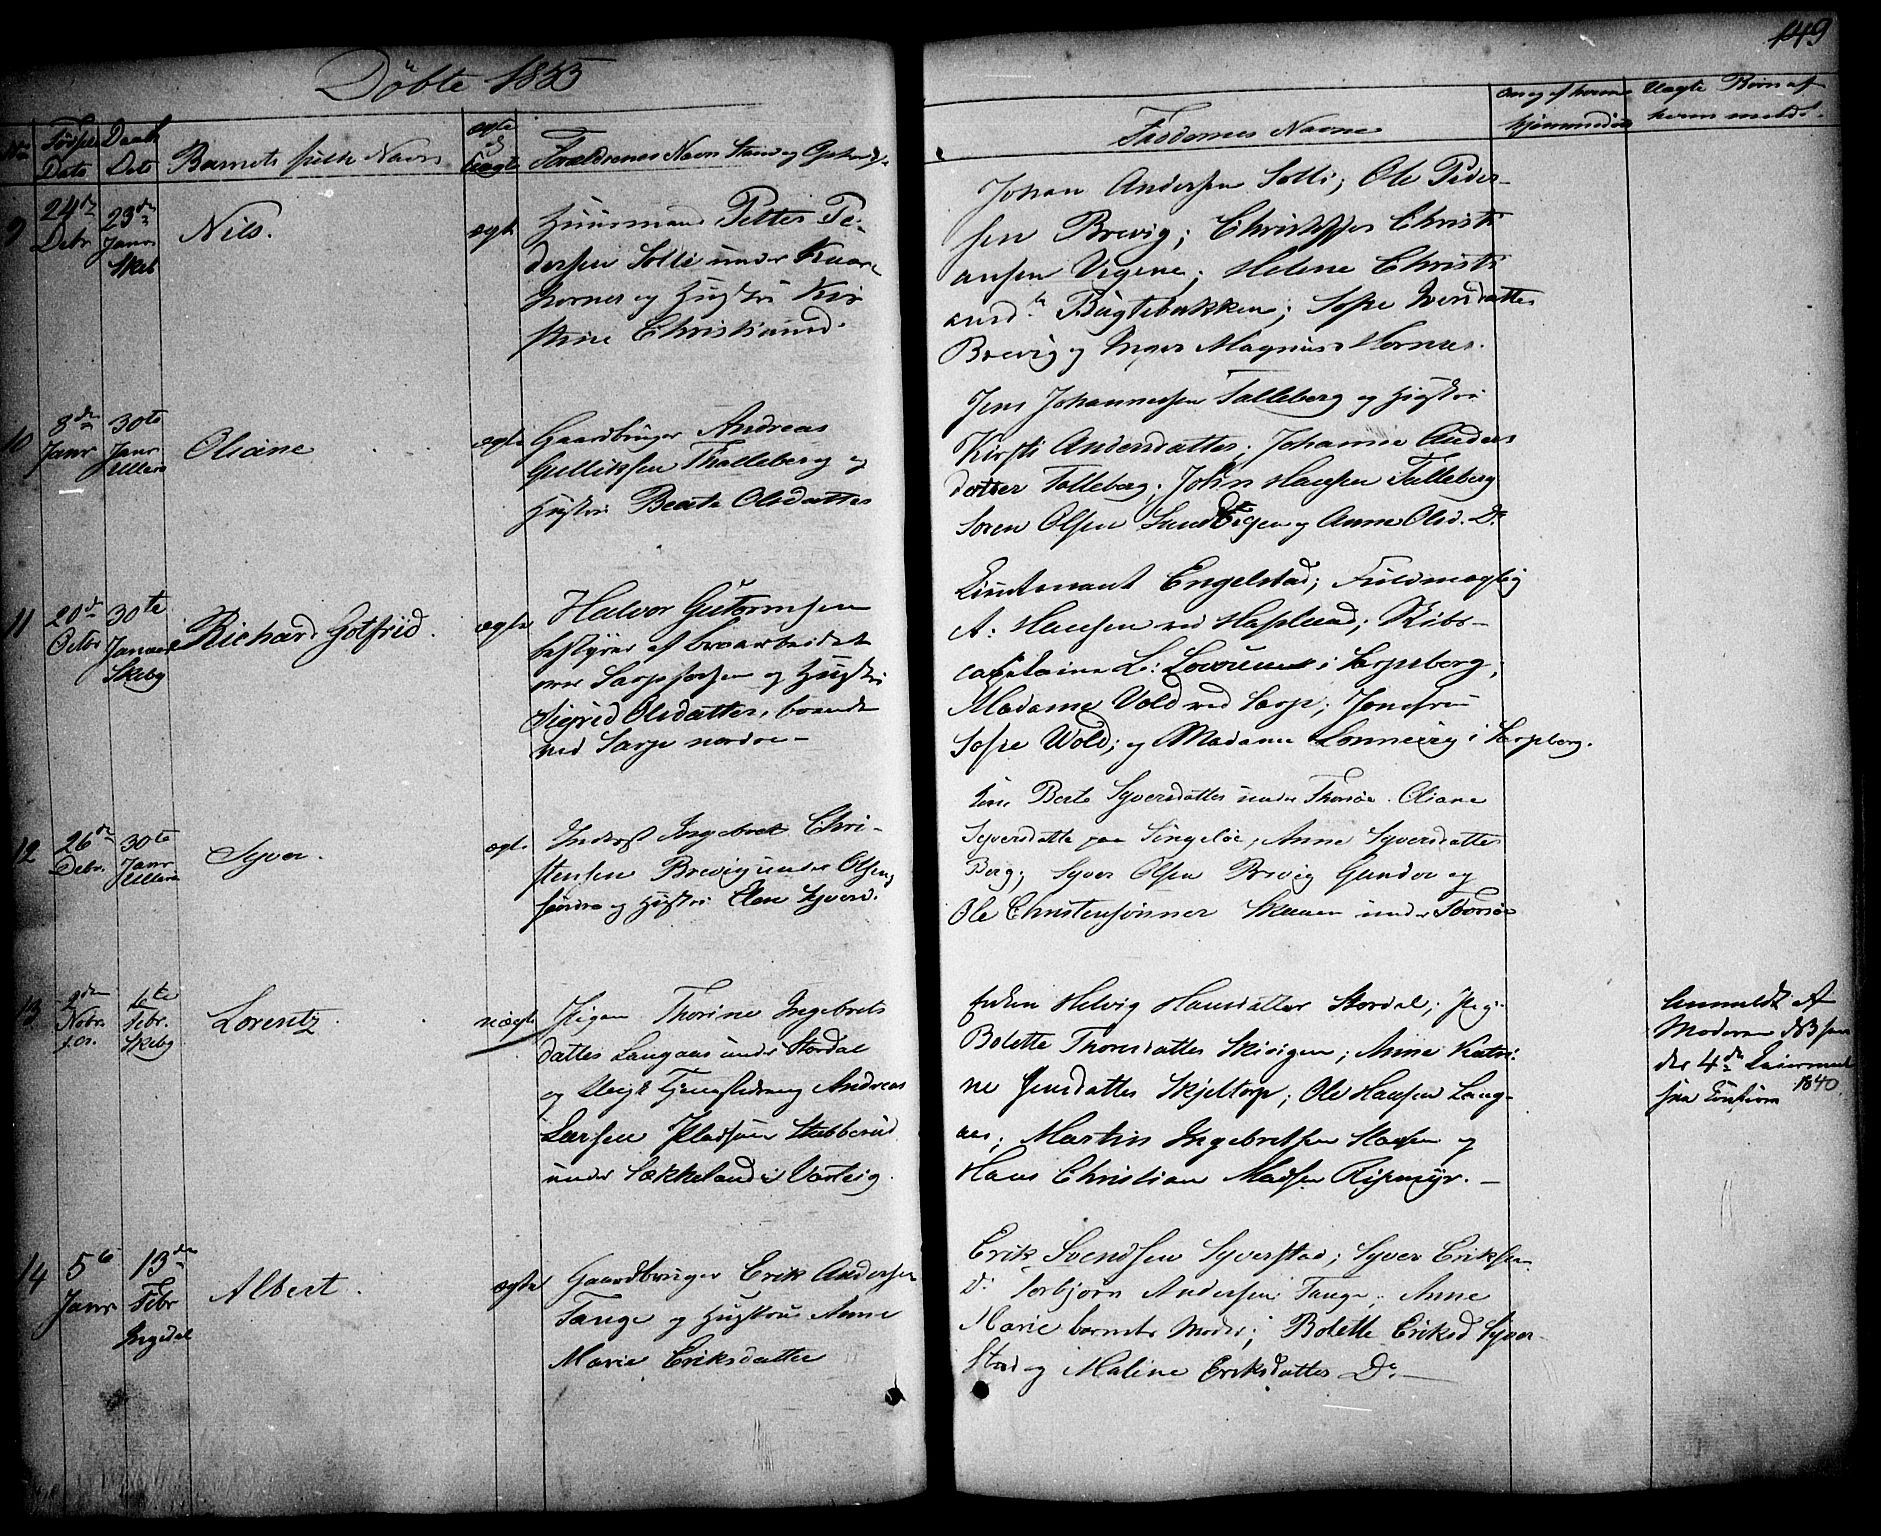 149
Döbte 1853
No Fødsel Date Daab Date Barnets fulde Navn ægte el. uægte Forældrenes Navn Stand og Opholds
Faddernes Navne
uægte Børn af hvem meldt
9 24de Debr 23de Janr Skeb Nils. ægte
Huusmand Petter Pe-
dersen Solli under
og Hustru Kir
stine Christiansd.
Johan Andersen Solli; Ole Peder-
sen Brevig; Christoffer Christi
ansen Vigene; Helene Christi
ansdtr Bugtebakken; Sofie Iversdatter
Brevig og Inger Magnusd Hornes.
10 8de Janr 30te Janr Ullerø Oliane ægte
Gaardbruger Andreas
Gulliksen Thalleberg og
Hustru Beate Olsdatter
Jens Johannesen Talleberg og Hustru
Kirsti Andersdatter; Johanne Anders
datter Talleberg; John Hansen Talleberg
Søren Olsen Sand og Anne Olsd. Do
11 20de Octbr 30te Januar Skebg Richard Gotfried. ægte
Halvor Gutormsen
bestyrer af broarbeidet
over Sarpsfossen og Hustru
Sigrid Olsdatter, boende
ved Sarp nordre –
Lieutenant Engelstad; Fuldmægtig
A: Hansen ved Hafslund; Skibs-
capitaine L: i Sarpsborg,
Madame Vold ved Sarp; Jomfru
Sofie Wold; og Madame Lonnevig i Sarpsborg.
12 26de Debr. 30te Janr Ullerø Syver. ægte
Inderst Ingebret Chri-
stensen Brevig under Olsen
søndre og Hustru Elen Syversd.
Berte Syversdatter under Thorsøe. Oliane
Syversdatter paa Singeløe, Anne Syversdatter
Berg; Syver Olsen Brevig Gunder og
Ole Christensønner under Thorsøe
13 2den Novbr f.A. 6te Febr. Skebg Lorentz. uægte
Pigen Thorine Ingebrets
datter Langaas under Stordal
og Ungk Andreas
Larsen Pladsen Stubberud
under Sækkelund i Varteig.
Enken Helvig Hansdatter Stordal; Pig.
Bolette Thoresdatter Skivigen; Anne Katri-
ne Jensdatter Skjeltorp; Ole Hansen Lang-
aas; Martin Ingebretsen og
Hans Christian Madsen Ripmyr. –
Anmeldt af
Moderen
der 4de Leiermaal
1840
14 5te Janr 13de Febr Ingedal Albert. ægte
Gaardbruger Erik Andersen
Tange og Hustrue Anne
Marie Eriksdatter
Erik Svendsen Syverstad; Syver Eriksen
Do Torbjørn Andersen Tange; Anne
Marie barnets Moder; Bolette Eriksd Syver-
stad og Maline Eriksdatter Do –